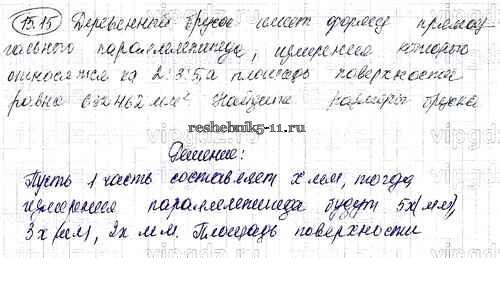 15.15 Деревянный брусок имеет форму прямоу-
гольного параллелепипеда, измерения которого
относятся как 2:3:5, а площадь поверхности
равна мм² Найдите размеры бруска
reshebnik5-11.ru
Решение:
Пусть 1 часть составляет х мм, тогда
измерения параллелепипеда будут 5х(мм),
3х(мм), 2х мм. Площадь поверхности